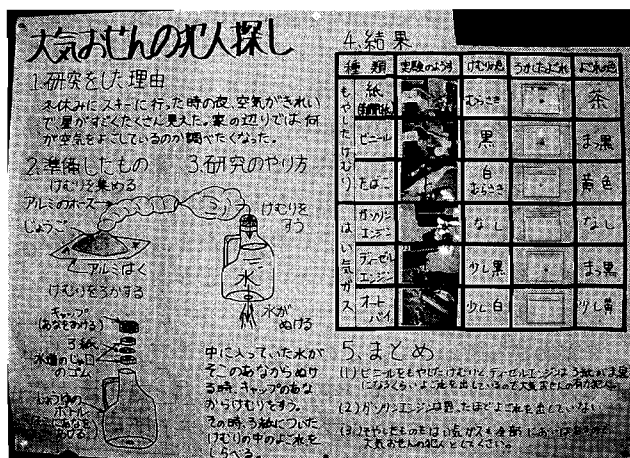 大気おせんの犯人探し
1.研究をした理由
冬休みにスキーに行った時の夜、空気がきれい
で星がすごくたくさん見えた。家の辺りでは、何
が空気をよごしているのか調べたくなった。
2.準備したもの
けむりを集める
アルミのホース
じょうご
アルミはく
けむりをろかする
キャップ
(あなをあける)
ろ紙
水道のじゃ口
のゴム
ボトル
3.研究のやり方
けむりを
すう
水
水が
ぬける
中に入っていた水が
そこのあなからぬけ
る時、キャップのあな
からけむりをすう。
その時、ろ紙についた
けむりの中のよごれを
しらべる。
4.結果
種類 実験のようす けむりの色 ろかしたよごれ よごれの色
もやしたけむり
紙 むらさき 茶
ビニール 黒 まっ黒
たばこ 白 むらさき 黄色
はい気ガス
ガソリンエンジン なし なし
ディーゼルエンジン 少し黒 まっ黒
オートバイ 少し白 少し黄
5.まとめ
(1)ビニールをもやしたけむりと、ディーゼルエンジンは、ろ紙がま黒
になるくらいよごれを出しているので大気おせんの有力犯人。
(2)ガソリンエンジンは思ったほどよごれを出していない
大気おせんの犯人